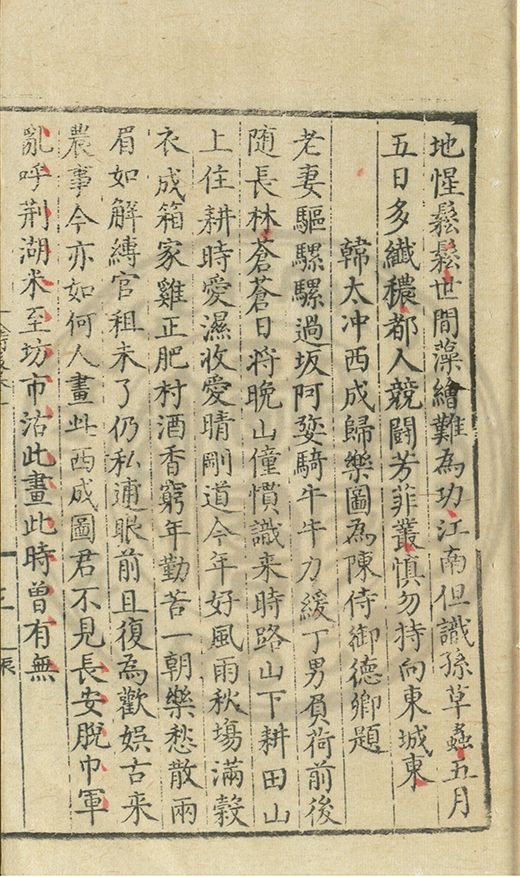 地惺鬆鬆世間藻繪難為功江南但識孫草蟲五月
五日多纖穠都人競鬪芳菲叢慎勿持向東城東
韓太冲西成歸樂圖為陳侍御德卿題
老妻驅騾騾過坂阿嬰騎牛牛力緩丁男負荷前後
随長林蒼蒼日将晚山僮慣識来時路山下耕田山
上住耕時愛濕收愛晴剛道今年好風雨秋塲滿穀
衣成箱家雞正肥村酒香窮年勤苦一朝樂愁散兩
眉如解縛官租未了仍私逋眼前且復為歡娯古来
農事今亦如何人畫此西成圖君不見長安脫巾軍
亂呼荆湖米至坊市沽此畫此時曾有無